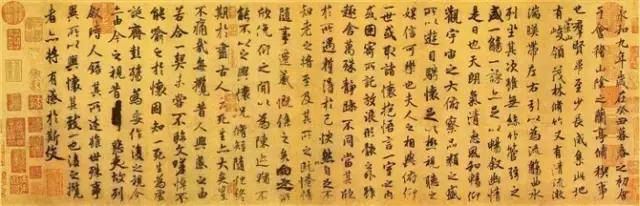 永和九年歲在癸丑暮春之初會
于會稽山陰之蘭亭脩稧事
也群賢畢至少長咸集此地
有峻領茂林脩竹又有清流激
湍暎帶左右引以為流觴曲水
列坐其次雖無絲竹管弦之
盛一觴一詠亦足以暢敘幽情
是日也天朗氣清惠風和暢仰
觀宇宙之大俯察品類之盛
所以遊目騁懷足以極視聽之
娛信可樂也夫人之相與俯仰
一世或取諸懷抱悟言一室之內
或因寄所託放浪形骸之外雖
趣舍萬殊靜躁不同當其欣
於所遇暫得於己快然自足不
知老之將至及其所之既惓情
隨事遷感慨係之矣向之所
欣俛仰之閒以為陳迹猶不
能不以之興懷況脩短隨化終
期於盡古人云死生亦大矣豈
不痛哉每攬昔人興感之由
若合一契未嘗不臨文嗟悼不
能喻之於懷固知一死生為虛
誕齊彭殤為妄作後之視今
亦由今之視昔悲夫故列
敘時人錄其所述雖世殊事
異所以興懷其致一也後之攬
者亦將有感於斯文